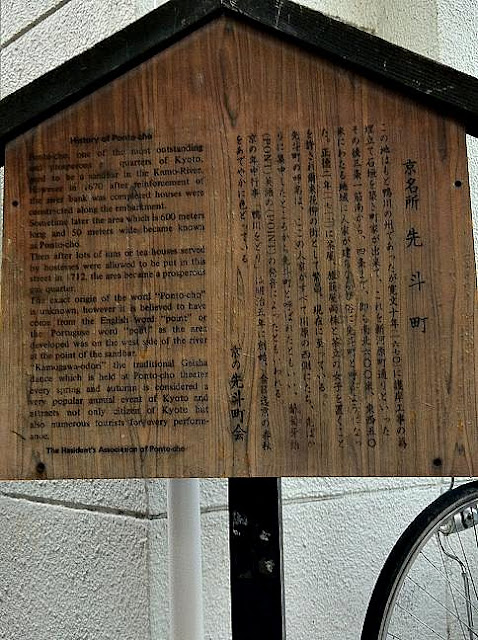 History of Ponto-cho
Ponto-cho, one of the most outstanding
and prosperous quarters of Kyoto,
used to be a sandbar in the Kamo-River.
However in 1670 after reinforcement of
the river bank was completed houses were
constructed along the embankment.
Sometime later the area which is 600 meters
long and 50 meters wide became known
as Ponto-cho.
Then after lots of inns or tea houses served
by hostesses were allowed to be put in this
street in 1712, the area became a prosperous
gay quarter.
The exact origin of the word "Ponto-cho"
is unknown, however it is believed to have
come from the English word "point" or
the Portugese word "pont" as the area
developed was on the west side of the river
at the point of the sandbar.
"Kamogawa-odori" the traditional Geisha
dance which is held at Ponto-cho theater
every spring and autumn is considered a
very popular annual event of Kyoto and
attracts not only citizen of Kyoto but
also numerous tourists for every perform-
ance.
The Resident's Association of Ponto-cho
京名所 先斗町
この地はもと鴨川の州であったが寛文十年(一六七〇)に護岸工事の為
埋立て石垣を築き町家が出来て、これを新河原町通りといった
その後三条一筋南から、四条まで、即ち南北六〇〇米、東西五〇
米にわたる地域に人家が建ちならび俗に先斗町と呼ぶようになっ
た。正徳二年(一七一二)に茶屋、旅籠屋両株に茶立の女子を置くこと
を許され爾来花柳の街として繁昌、現在に至っている。
先斗町の地名は、ここの人家がすべて川原の西側にたち、先ばか
りに集中したところから先斗町と呼ばれたともいい、葡萄牙語
(PONTO)英語の(POINT)の発音によったともいわれる。
京の年中行事「鴨川をどり」は明治三年に創始、京の春秋
をあでやかに色どっている。
京の先斗町会